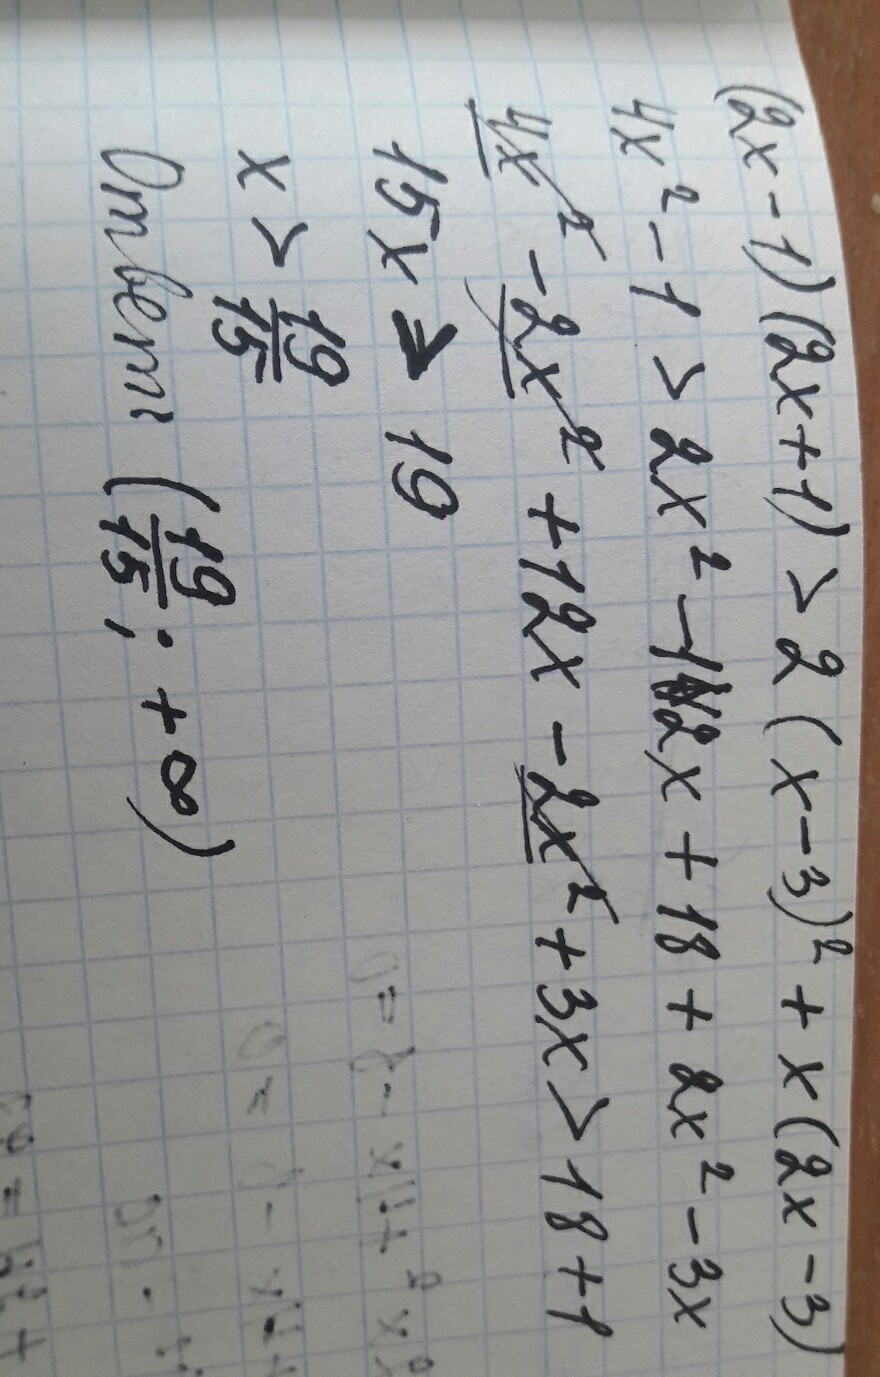 (2x-1)(2x+1) > 2(x-3)² + x(2x-3)
4x² - 1 > 2x² - 12x + 18 + 2x² - 3x
4x² - 2x² + 12x - 2x² + 3x > 18 + 1
15x > 19
x > 19/15
Ответ: (19/15; +∞)